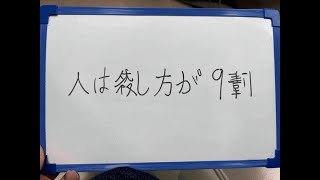 人は綾し方が 9割